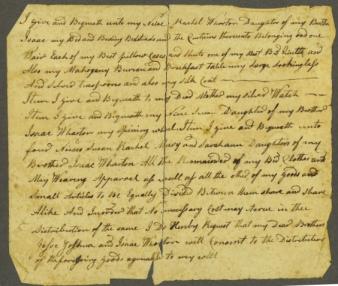 I give and Bequeth unto my Neice Rachel Wharton Daughter of my Brother
Isaac my Bed and Beding Bedsteads and the Curtins thereunto Belonging and one
Pair Each of my Best pillow Cases and Sheets one of my Best Bed Quilts and
Also my Mahogony Bureau and Breakfast table my large Lookinglass
And Silver teaspoons and also my Silk Coat
Item I give and Bequeth to my Dear Mother my Silver Watch
Item I give and Bequeth my Neice Susan Daughter of my Brother
Isaac Wharton my Spining wheel Item I give and Bequeth unto
Neices Susan Rachel Mary and Daughters of my
Brother Isaac Wharton All the Remainder of my Bed Clothes and
May Wearing Apparrel as well as all the of my Goods and
Small Articles to be Equally Divided Between them share and share
Alike And In order that No unnessary Cost may in the
Distribution of the same I Do Hereby Request that my Dear Brothers
Joshua and Isaac Wharton will Consent to the Distribution
of the foregoing Goods agreeable to my will